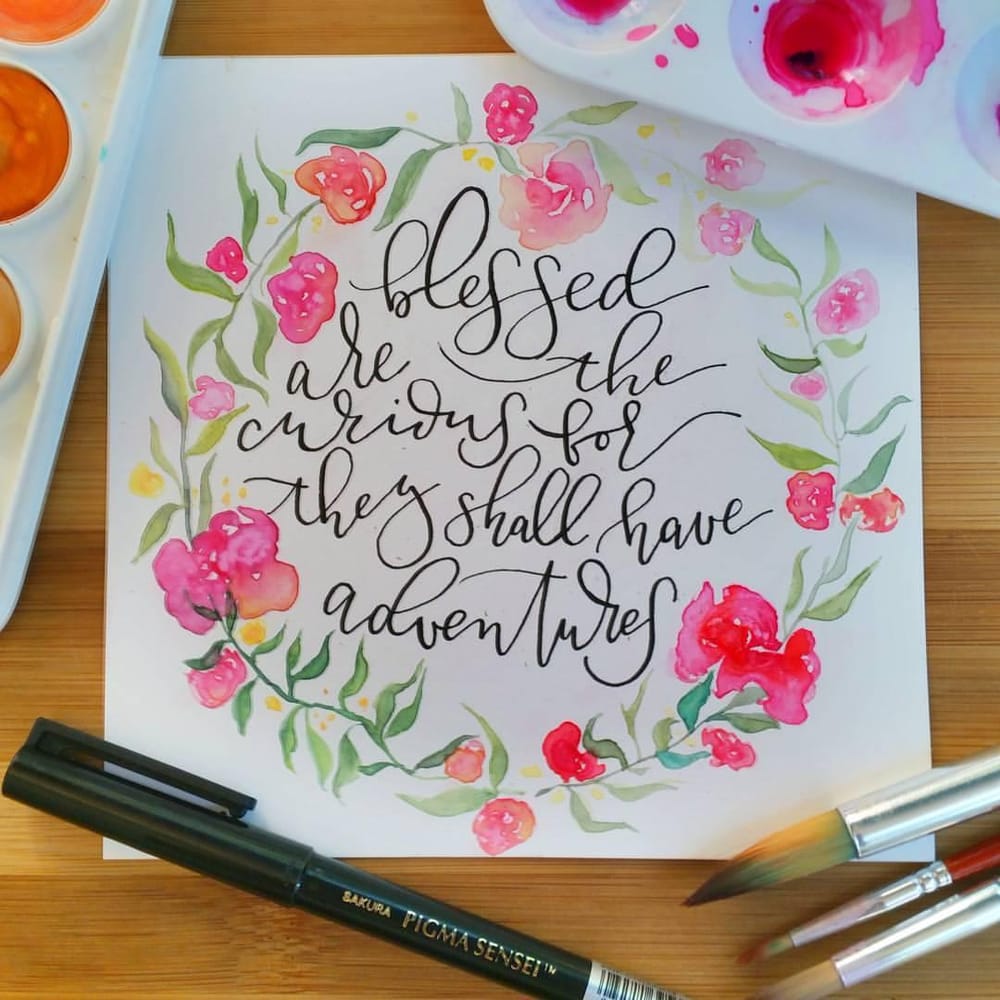 blessed
are the
curious for
they shall have
adventures
SAKURA PIGMA SENSEI™